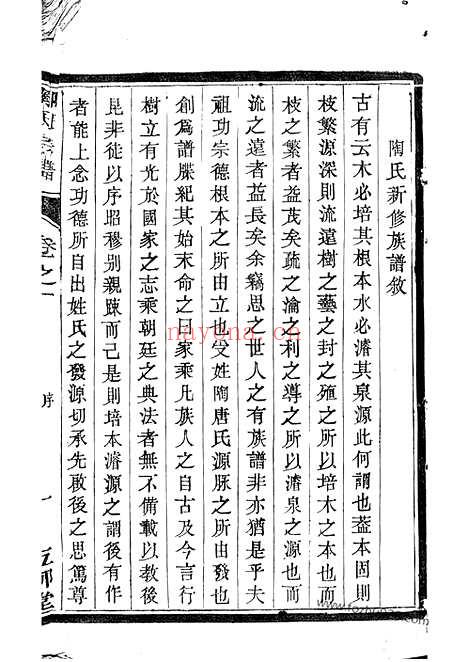 陶氏新修族譜敘
古有云木必培其根本水必濬其泉源此何謂也蓋本固則
枝繁源深則流遠樹之藝之封之殖之所以培木之本也而
枝之繁者益茂矣疏之瀹之利之導之所以濬泉之源也而
流之遠者益長矣余竊思之世人之有族譜非亦猶是乎夫
祖功宗德根本之所由立也受姓陶唐氏源脉之所由發也
創爲譜牒紀其始末命之曰家乘凡族人之自古及今言行
樹立有光於國家之志乘朝廷之典法者無不備載以教後
昆非徒以序昭穆别親踈而已是則培本濬源之謂後有作
者能上念功德所自出姓氏之發源切承先啟後之思篤尊
族譜
卷之一
序
一
五柳堂
nayona.cn